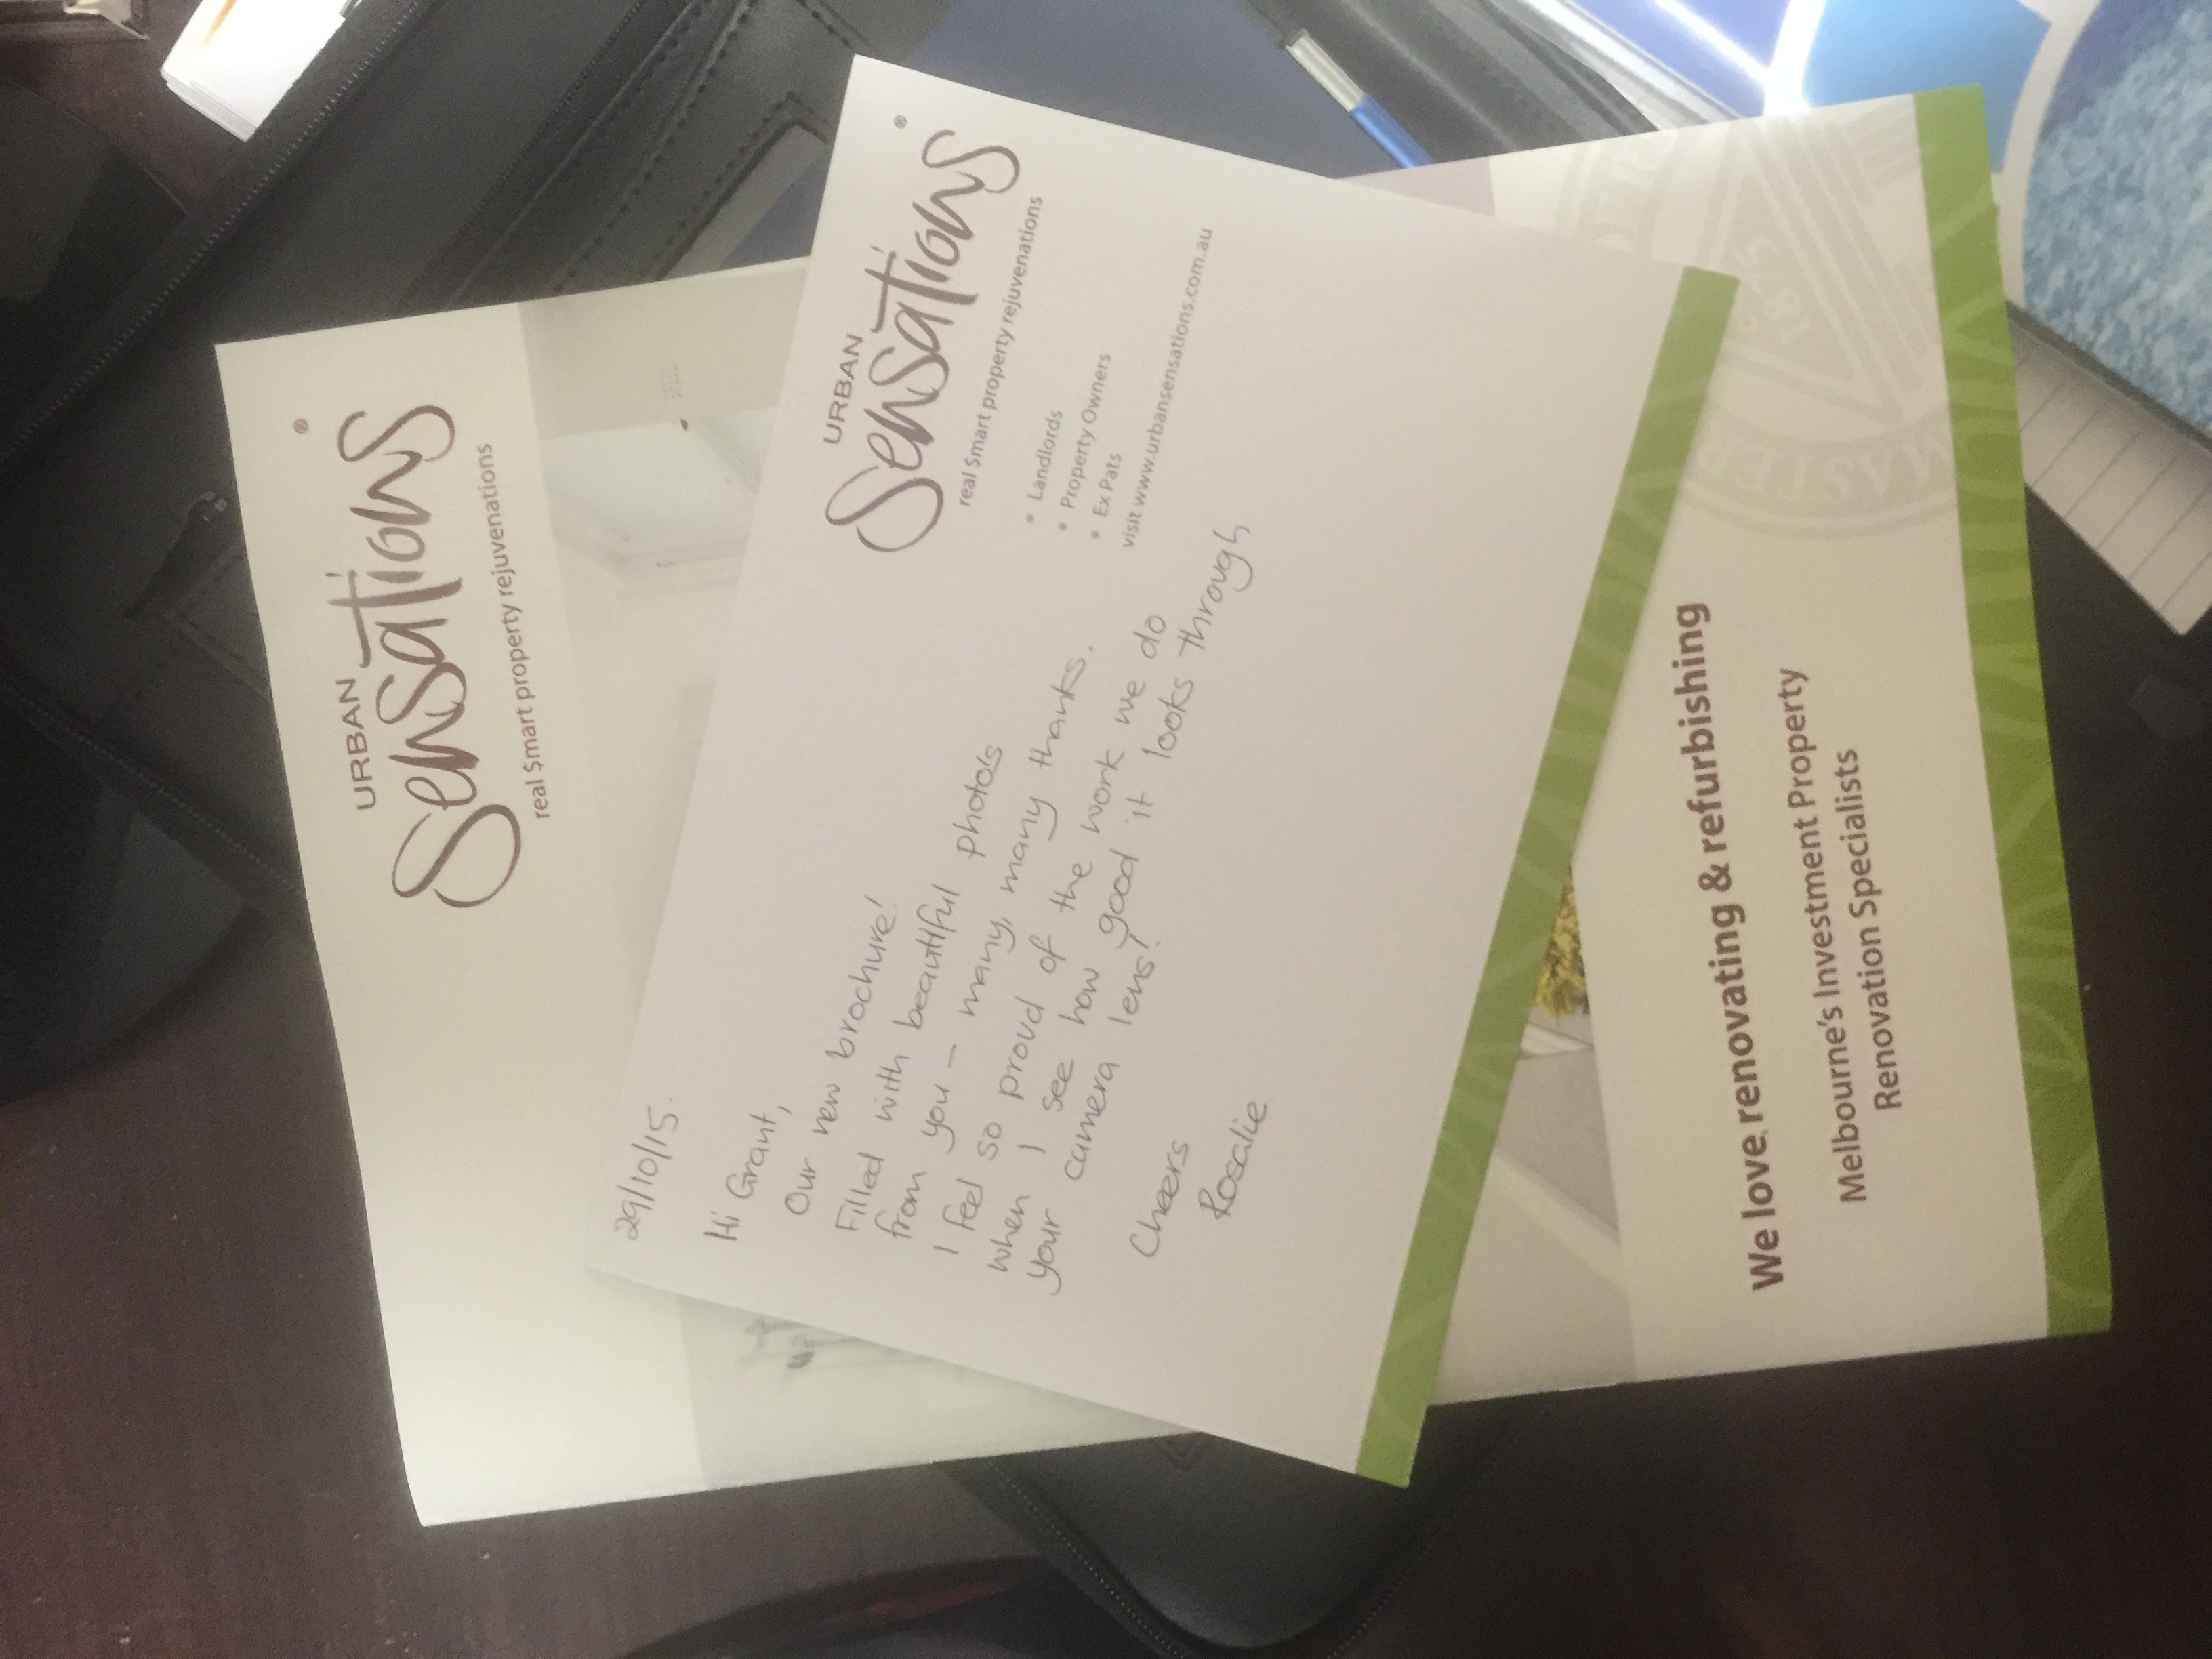 URBAN
Sensations®
real $mart property rejuvenations
URBAN
Sensations®
real $mart property rejuvenations
• Landlords
• Property Owners
• Ex Pats
visit www.urbansensations.com.au
29/10/15.
Hi Grant,
Our new brochure!
Filled with beautiful photo's
from you – many, many thanks.
I feel so proud of the work we do
when I see how good it looks through
your camera lens!
Cheers
Rosalie
We love renovating & refurbishing
Melbourne's Investment Property
Renovation Specialists
MASTER